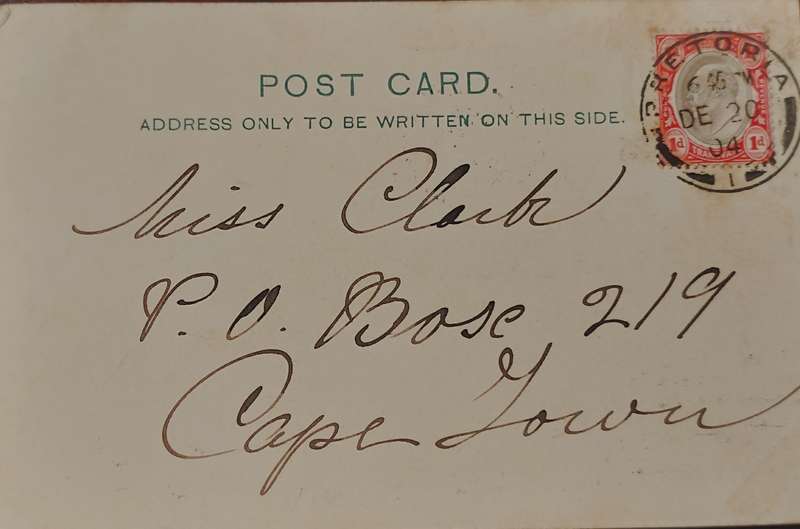 POST CARD.
ADDRESS ONLY TO BE WRITTEN ON THIS SIDE.
PRETORIA
6 45 PM
DE 20
04
1
1d TRANSVAAL 1d
Miss Clark
P. O. Box 219
Cape Town